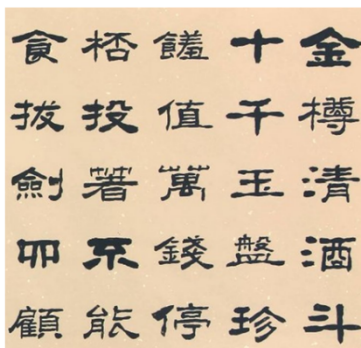 金樽清酒斗
十千玉盤珍
饈值萬錢停
桮投著不能
食拔劍四顧